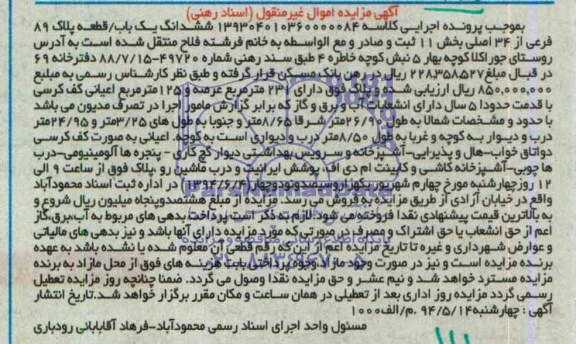 آگهی مزایده اموال غیرمنقول (اسناد رهنی)
بموجب پرونده اجرایی کلاسه ۱۳۹۳۰۴۰۱۰۳۶۰۰۰۰۰۸۴ ششدانگ یک باب/قطعه پلاک ۸۹
فرعی از ۳۴ اصلی بخش ۱۱ ثبت و صادر و مع الواسطه به خانم فرشته فلاح منتقل شده است به آدرس
روستای جور اکلا کوچه بهار ۵ نبش کوچه خاطره ۴ طبق سند رهنی شماره ۴۹۷۲۰-۸۸/۷/۱۵ دفترخانه ۶۹
در قبال مبلغ ۲۲۸,۳۵۸۵۲۷ ریال در رهن بانک مسکن قرار گرفته و طبق نظر کارشناس رسمی به مبلغ
۸۵۰,۰۰۰,۰۰۰ ریال ارزیابی شده و پلاک فوق دارای ۲۳۰ مترمربع عرصه و ۱۲۵ مترمربع اعیانی کف کرسی
با قدمت حدودا ۵ سال دارای انشعابات آب و برق و گاز که برابر گزارش مامور اجرا در تصرف مدیون می باشد
با حدود و مشخصات شمالا به طول ۲۶/۹۰ متر شرقا ۸/۶۵ متر و جنوبا به طول های ۳/۲۵ متر و ۲۴/۹۵ متر
درب و دیوار به کوچه و غربا به طول ۸/۵۰ متر درب و دیواری است به کوچه. اعیانی به صورت کف کرسی
دو اتاق خواب-هال و پذیرایی-آشپزخانه و سرویس بهداشتی دیوار گچ کاری - پنجره ها آلومینیومی-درب
ها چوبی-آشپزخانه کاشی و کابینت ام دی اف، پوشش ایرانیت و درب ماشین رو. پلاک فوق از ساعت ۹ الی
۱۲ روز چهارشنبه مورخ چهارم شهریور یکهزار و سیصد و نود و چهار (۱۳۹۴/۶/۴) در اداره ثبت اسناد محمودآباد
واقع در خیابان آزادی از طریق مزایده به فروش می رسد. مزایده از مبلغ هشتصد و پنجاه میلیون ریال شروع و
به بالاترین قیمت پیشنهادی نقدا فروخته می شود. لازم به ذکر است پرداخت بدهی های مربوط به آب،برق،گاز
اعم از حق انشعاب یا حق اشتراک و مصرف در صورتی که مورد مزایده دارای آنها باشد و نیز بدهی های مالیاتی
و عوارض شهرداری و غیره تا تاریخ مزایده اعم از این که رقم قطعی آن معلوم شده یا نشده باشد به عهده
برنده مزایده است و نیز در صورت وجود مازاد، وجوه پرداختی بابت هزینه های فوق از محل مازاد به برنده
مزایده مسترد خواهد شد و نیم عشر و حق مزایده نقدا وصول می گردد. ضمنا چنانچه روز مزایده تعطیل
رسمی گردد مزایده روز اداری بعد از تعطیلی در همان ساعت و مکان مقرر برگزار خواهد شد. تاریخ انتشار
آگهی : چهارشنبه ۹۴/۵/۱۴. م/الف ۱۰۰۰
مسئول واحد اجرای اسناد رسمی محمودآباد-فرهاد آقابابائی رودباری